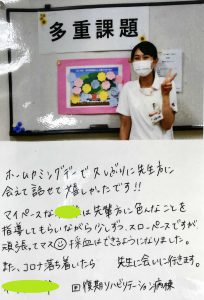 多重課題
ホームカミングデーで久しぶりに先生方に
会えて話せて嬉しかたです!!
マイペースな は先輩方に色んなことを
指導してもらいながら少しずつ、スローペースですが
頑張してマス 採血はできるようになりました。
また、コロナ落ち着いたら 先生に会いに行きます。
回復期リハビリテーション病棟